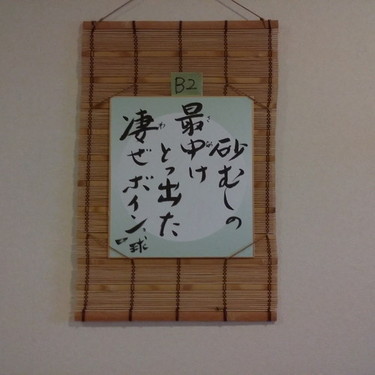 B2
砂むしの
最中け
とっ出た
凄ぜボイン